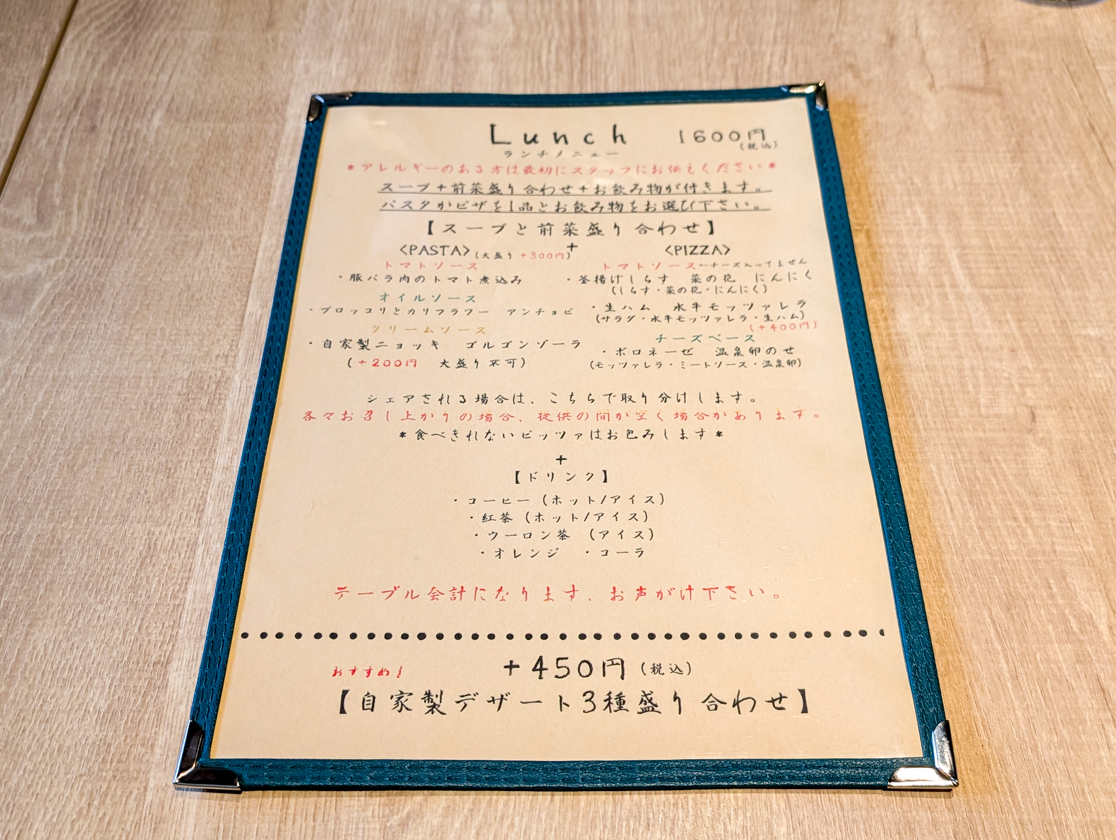 Lunch 1600円(税込)
ランチメニュー
*アレルギーのある方は最初にスタッフにお伝えください*
スープ+前菜盛り合わせ+お飲み物が付きます。
パスタかピザを1品とお飲み物をお選び下さい。
【スープと前菜盛り合わせ】
+
〈PASTA〉(大盛り+300円)
トマトソース
・豚バラ肉のトマト煮込み
オイルソース
・ブロッコリとカリフラワー アンチョビ
クリームソース
・自家製ニョッキ ゴルゴンゾーラ
(+200円 大盛り不可)
〈PIZZA〉
トマトソース←チーズ入ってません
・釜揚げしらす 菜の花 にんにく
(しらす・菜の花・にんにく)
・生ハム 水牛モッツァレラ
(サラダ・水牛モッツァレラ・生ハム)
(+400円)
チーズベース
・ボロネーゼ 温泉卵のせ
(モッツァレラ・ミートソース・温泉卵)
シェアされる場合は、こちらで取り分けします。
各々お召し上がりの場合、提供の間が空く場合があります。
*食べきれないピッツァはお包みします*
+
【ドリンク】
・コーヒー(ホット/アイス)
・紅茶(ホット/アイス)
・ウーロン茶 (アイス)
・オレンジ ・コーラ
テーブル会計になります、お声がけ下さい。
おすすめ! +450円(税込)
【自家製デザート3種盛り合わせ】